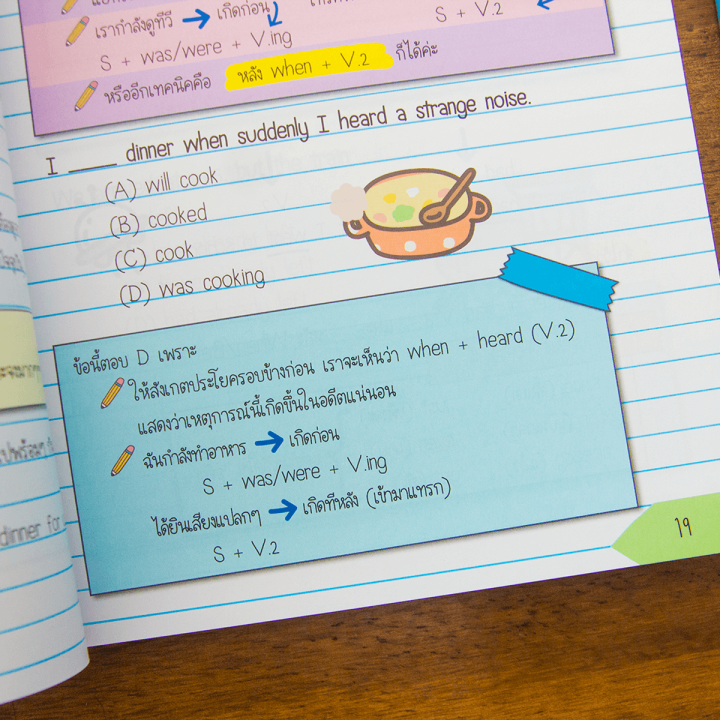 เรากำลังดูทีวี → เกิดก่อน
S + was/were + V.ing
S + V.2
หรืออีกเทคนิคคือ หลัง when + V.2 ก็ได้ค่ะ
I ____ dinner when suddenly I heard a strange noise.
(A) will cook
(B) cooked
(C) cook
(D) was cooking
ข้อนี้ตอบ D เพราะ
ให้สังเกตประโยครอบข้างก่อน เราจะเห็นว่า when + heard (V.2)
แสดงว่าเหตุการณ์นี้เกิดขึ้นในอดีตแน่นอน
ฉันกำลังทำอาหาร → เกิดก่อน
S + was/were + V.ing
ได้ยินเสียงแปลกๆ → เกิดทีหลัง (เข้ามาแทรก)
S + V.2
19
dinner for